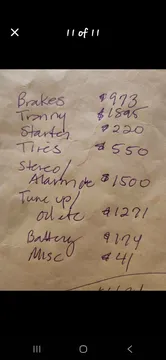 11 of 11
Brakes $973
Tranny
Starter $220
Tires $550
Stereo/
Alarm $1500
Tune up/
oil etc $1271
Battery $174
Misc $41